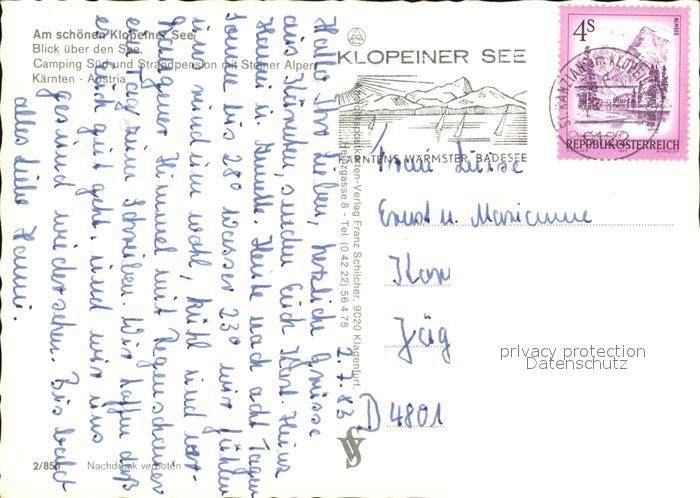 Am schönen Klopeiner See
Blick über den See,
Camping Süd und Strandpension mit Steiner Alpen
Kärnten - Austria
KLOPEINER SEE
KÄRNTENS WÄRMSTER BADESEE
4S
ALMSEE
REPUBLIK ÖSTERREICH
ST. KANZIAN am KLOPEINER
Verlag Franz Schilcher, 9020 Klagenfurt,
gasse 8 - Tel. (0 42 22) 56 4 75
2.7.83
Hallo Ihr Lieben, herzliche Grüsse
aus Kärnten, senden Euch Karl-Heinz
Hanni u. Heute nach acht Tagen
Sonne bis 28° Wasser 23° wir fühlen
uns wohl, kühl und
Himmel mit Regenschauer
ein Tag zum Schreiben. Wir hoffen daß
es Euch gut geht, und wir uns
gesund wiedersehen. Bis bald
alles Liebe Hanni.
Frau Luise
Ernst u. Marianne
Kar
Jäg
D 4801
privacy protection
Datenschutz
2/850
Nachdruck verboten